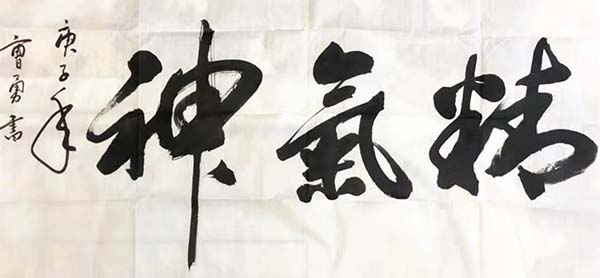 精氣神
庚子年
曹勇書